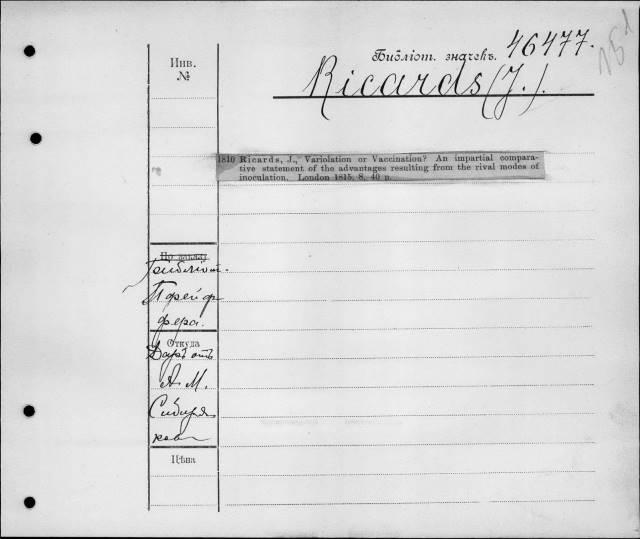 15d
Библіот. значекъ. 46477.
Ricards (J.).
Инв.
№
1810 Ricards, J., Variolation or Vaccination? An impartial compara-
tive statement of the advantages resulting from the rival modes of
inoculation. London 1815. 8. 40 p.
По заказу
Библіот.
Пфейф
фера.
Откуда
Даръ отъ
А. М.
Сибиря
кова
Цѣна